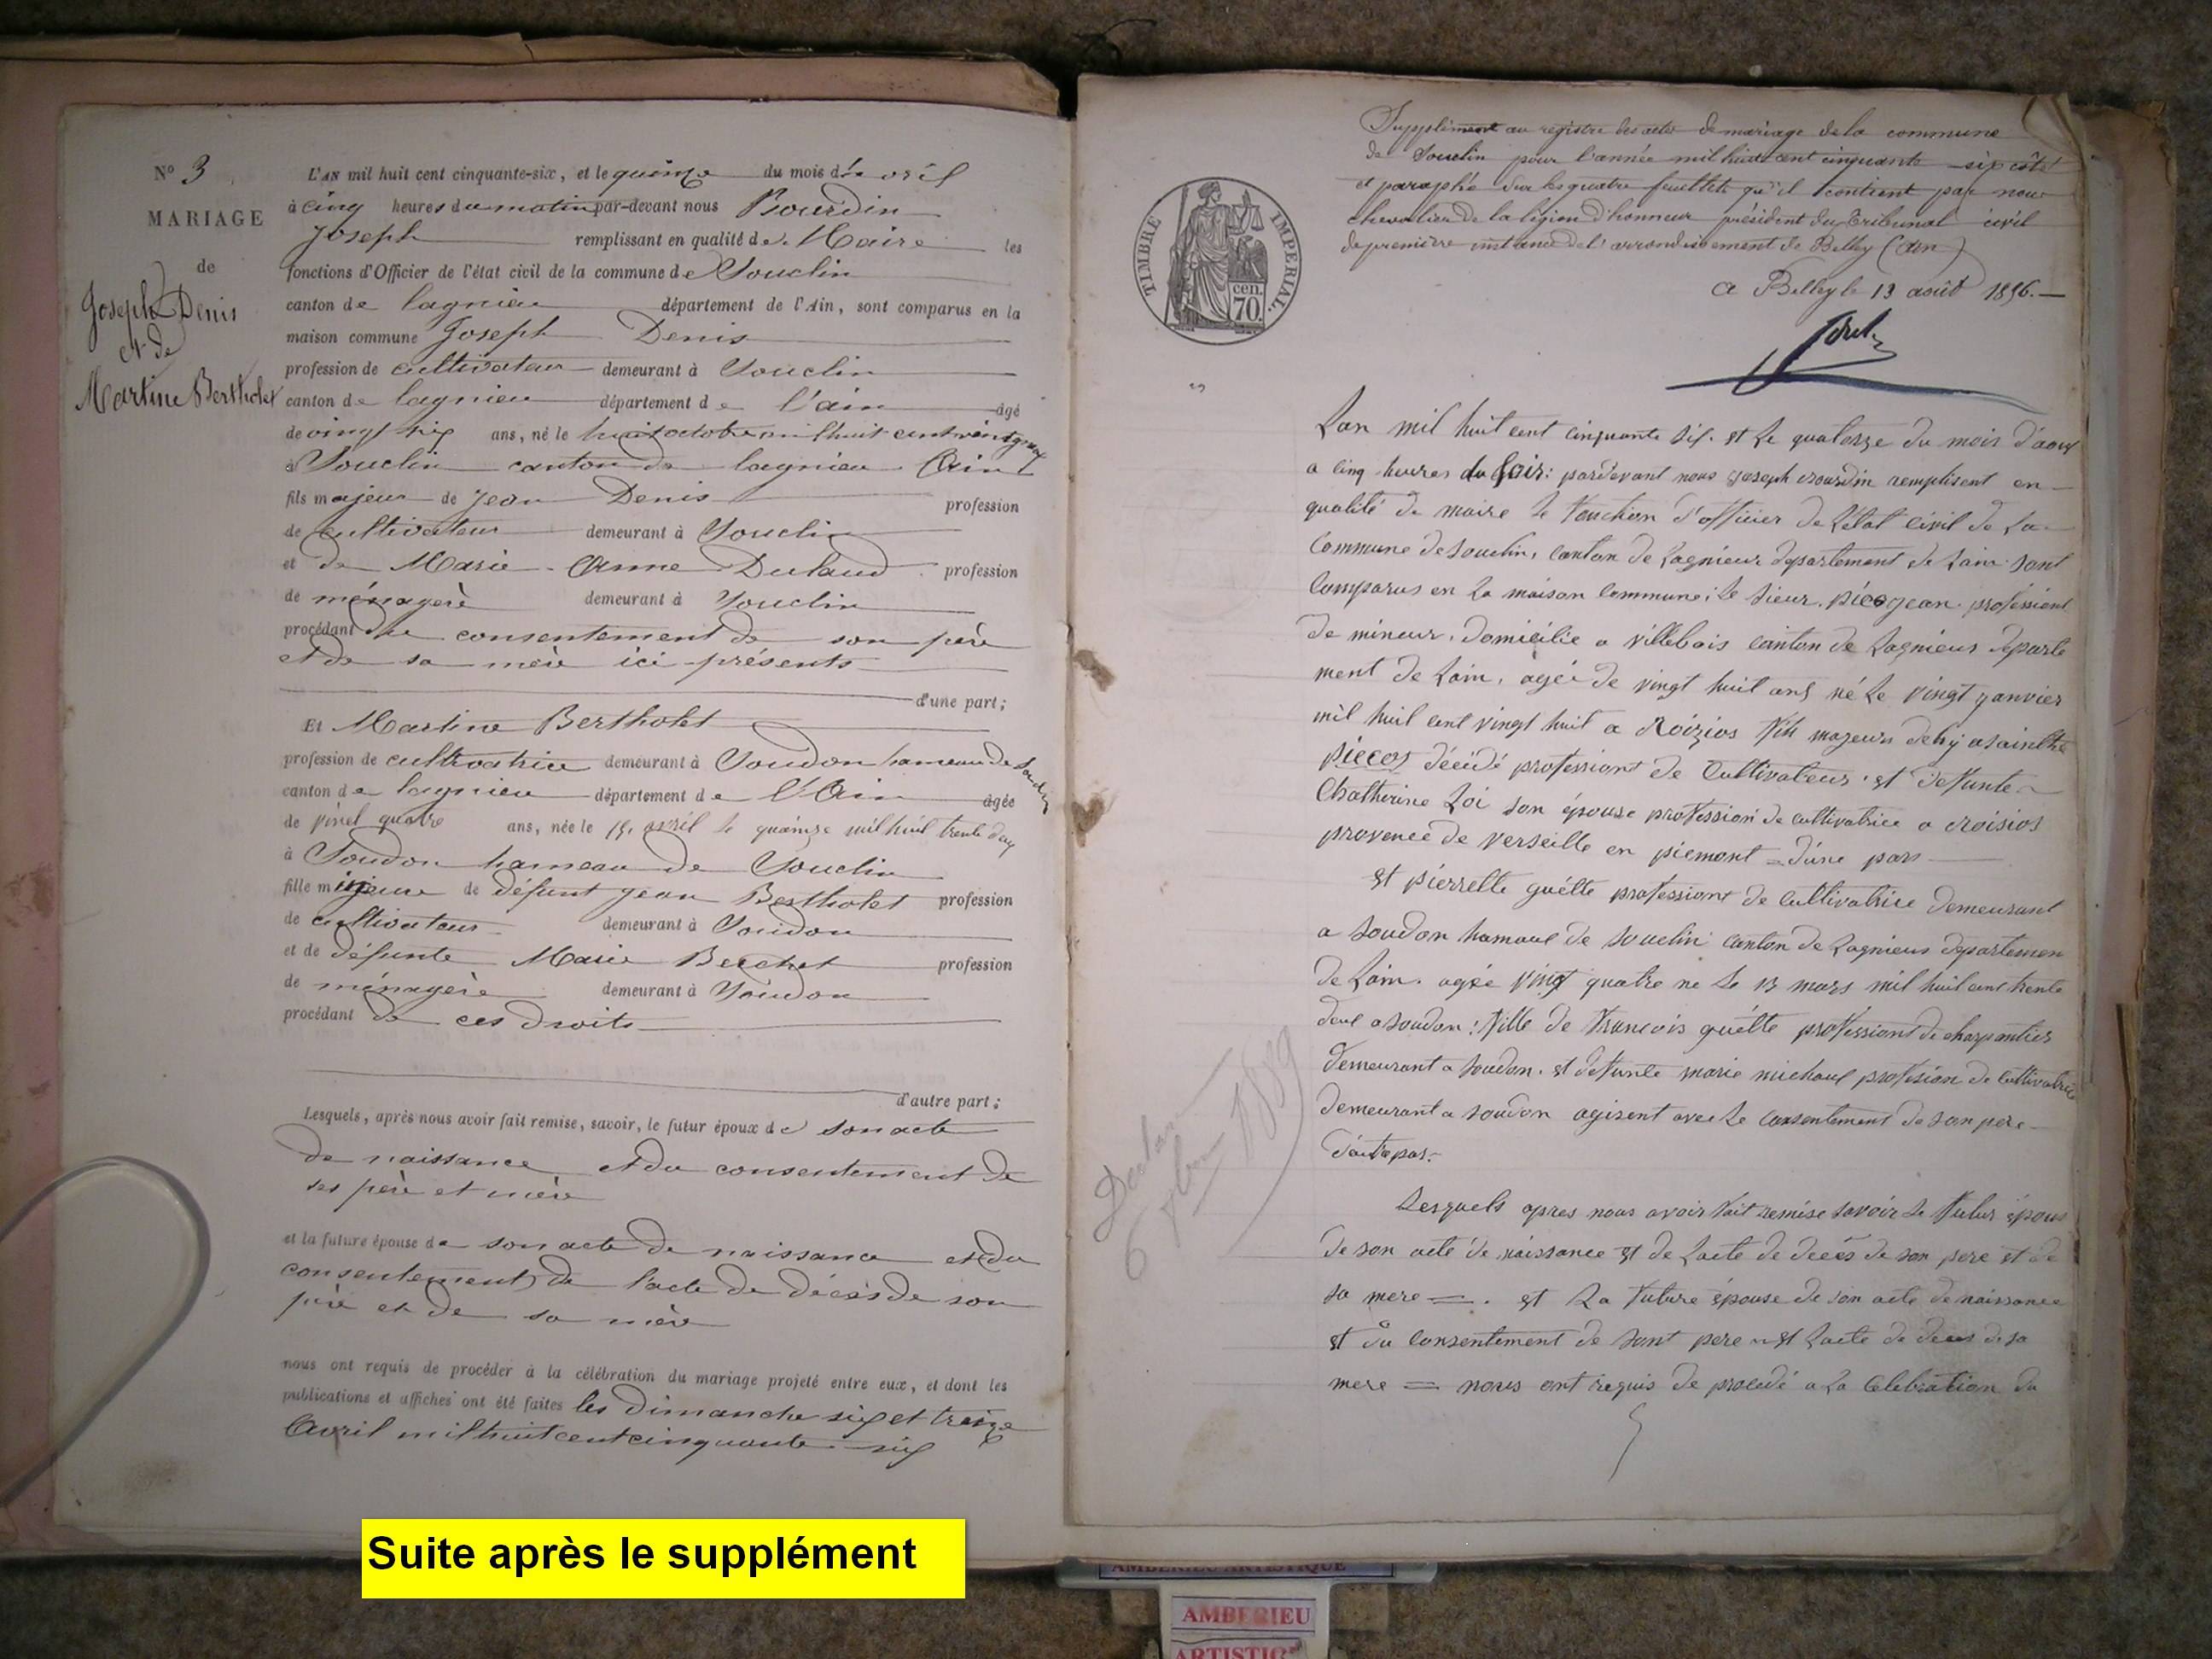 N° 3
MARIAGE
de
Joseph Denis
et de
Martine Bertholet
L'AN mil huit cent cinquante-six, et le quinze du mois d'avril
à cinq heures du matin par-devant nous Bourdin
Joseph remplissant en qualité de Maire les
fonctions d'Officier de l'état civil de la commune de Souclin
canton de lagnieu département de l'Ain, sont comparus en la
maison commune Joseph Denis
profession de cultivateur demeurant à Souclin
canton de lagnieu département de l'ain âgé
de vingt six ans, né le huit octobre mil huit cent vingt neuf
à Souclin canton de lagnieu Ain
fils majeur de Jean Denis profession
de cultivateur demeurant à Souclin
et de Marie Anne Dulaud profession
de ménagère demeurant à Souclin
procédant du consentement de son père
et de sa mère ici présents
d'une part;
Et Martine Bertholet
profession de cultivatrice demeurant à Soudon hameau de Souclin
canton de lagnieu département de l'Ain âgée
de vinct quatre ans, née le 15 avril le quainze mil huit trente deu
à Soudon hameau de Souclin
fille majeure de défunt Jean Bertholet profession
de cultivateur demeurant à Soudon
et de défunte Marie Berchet profession
de ménagère demeurant à Soudon
procédant de ces droits
d'autre part;
Lesquels, après nous avoir fait remise, savoir, le futur époux de son acte
de naissance et du consentement de
ses père et mère
et la future épouse de son acte de naissance et du
consentement de l'acte de décès de son
père et de sa mère
nous ont requis de procéder à la célébration du mariage projeté entre eux, et dont les
publications et affiches ont été faites les dimanche six et treize
Avril mil huit cent cinquante six
Suite après le supplément
Supplément au registre des actes de mariage de la commune
de Souclin pour l'année mil huit cent cinquante six côté
et paraphé sur les quatre feuillets qu'il contient par nous
chevalier de la légion d'honneur président du Tribunal civil
de première instance de l'arrondissement de Belley (ain)
A Belley le 13 août 1856.
TIMBRE IMPERIAL.
70 cen.
Lan mil huit cent cinquante six. et le quatorze du mois d'aout
a cinq heures du soir: pardevant nous joseph bourdin remplisent en
qualité de maire le fonction d'officier de l'état civil de la
Commune de souclin, canton de Lagnieu departement de Lain sont
Comparus en la maison commune: le sieur. picco jean. professiont
de mineur. domicilie a villebois canton de Lagnieus departe
ment de Lain. agée de vingt huit ans né le vingt janvier
mil huit cent vingt huit a Roizios fils majeurs de hy asainthe
piecos décédé professiont de Cultivateur. et defunte
Chatherine Loi son épouse profession de cultivatrice a croisios
provence de verseille en piemont = dune pars
et pierrette guétte professiont de cultivatrice demeurant
a soudon hamaul de souclin canton de Lagnieus departemen
de Lain. agée vingt quatre ne le 13 mars mil huil cent trente
deul a soudon: fille de francois guétte professiont de charpantier
demeurant a soudon. et defunte marie michaul profesion de cultivatrice
demeurant a soudon agisent avec le consentement de son pere
d'autre par.
Lesquels apres nous avoir fait remise savoir le futur épous
de son acte de naissance et de lacte de deces de son pere et de
sa mere =. et la future épouse de son acte de naissance
et du consentement de sont pere et lacte de deces de sa
mere = nous ont requis de procedé a la celebration du
6 7bre 1889
AMBERIEU ARTISTIQUE
AMBERIEU
ARTISTIQ